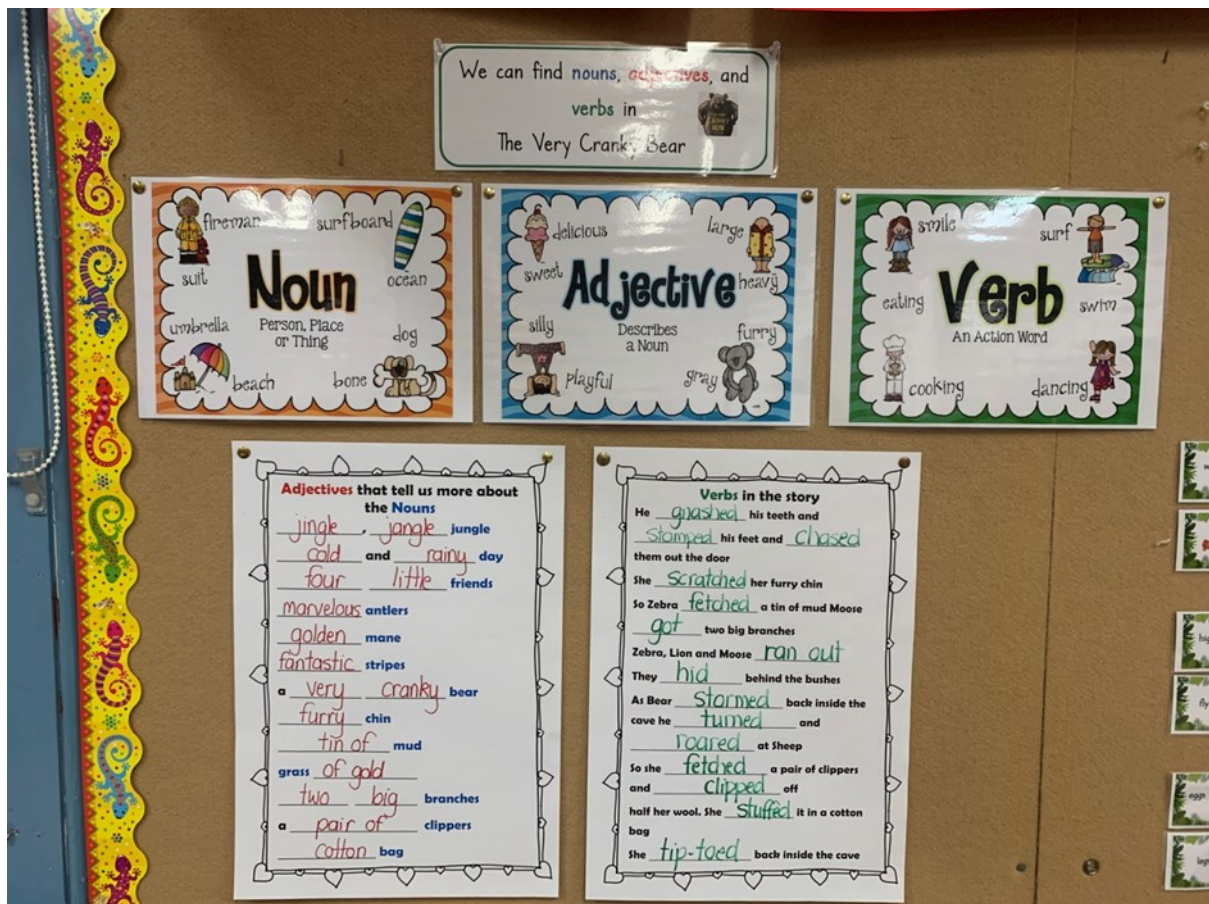 We can find nouns, adjectives, and
verbs in
The Very Cranky Bear
fireman surfboard
suit ocean
Noun
Person, Place
or Thing
umbrella dog
beach bone
delicious large
sweet heavy
Adjective
Describes
a Noun
silly furry
playful gray
smile surf
eating swim
Verb
An Action Word
cooking dancing
Adjectives that tell us more about
the Nouns
jingle, jangle jungle
cold and rainy day
four little friends
marvelous antlers
golden mane
fantastic stripes
a very cranky bear
furry chin
tin of mud
grass of gold
two big branches
a pair of clippers
cotton bag
Verbs in the story
He gnashed his teeth and
stomped his feet and chased
them out the door
She scratched her furry chin
So Zebra fetched a tin of mud Moose
got two big branches
Zebra, Lion and Moose ran out
They hid behind the bushes
As Bear stormed back inside the
cave he turned and
roared at Sheep
So she fetched a pair of clippers
and clipped off
half her wool. She stuffed it in a cotton
bag
She tip-toed back inside the cave
eggs